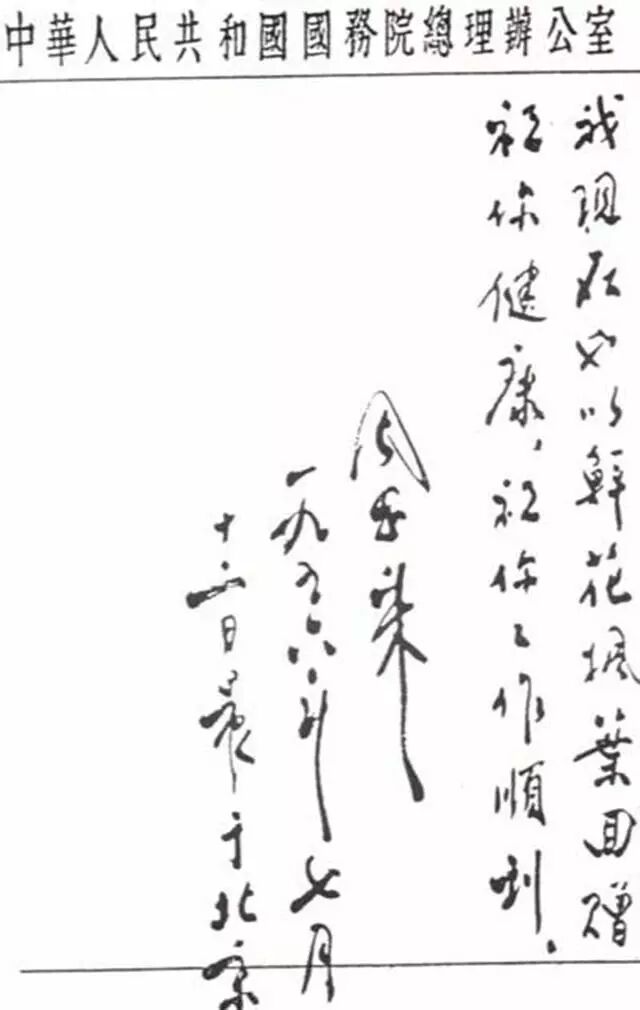 中華人民共和國國務院總理辦公室
我現在也以鮮花楓葉回贈
祝你健康，祝你工作順利。
周恩来
一九五六年七月
十六日晨于北京